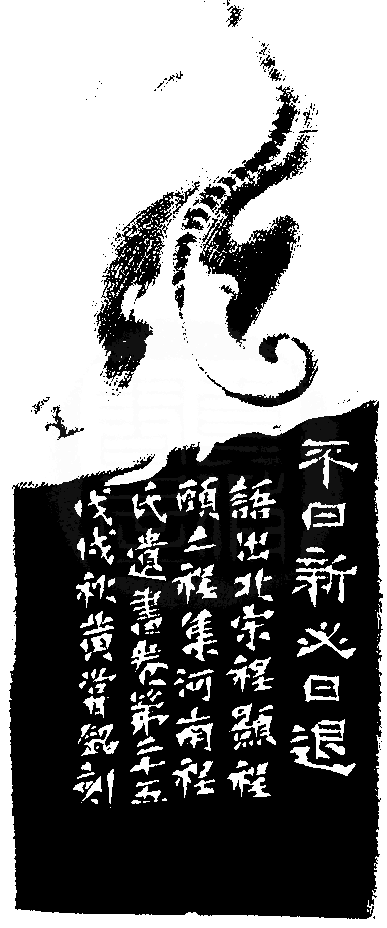 不日新必日退
語出北宋程顥程
頤二程集河南程
氏遺書卷第二十五
戊戌秋黄嘗銘刻